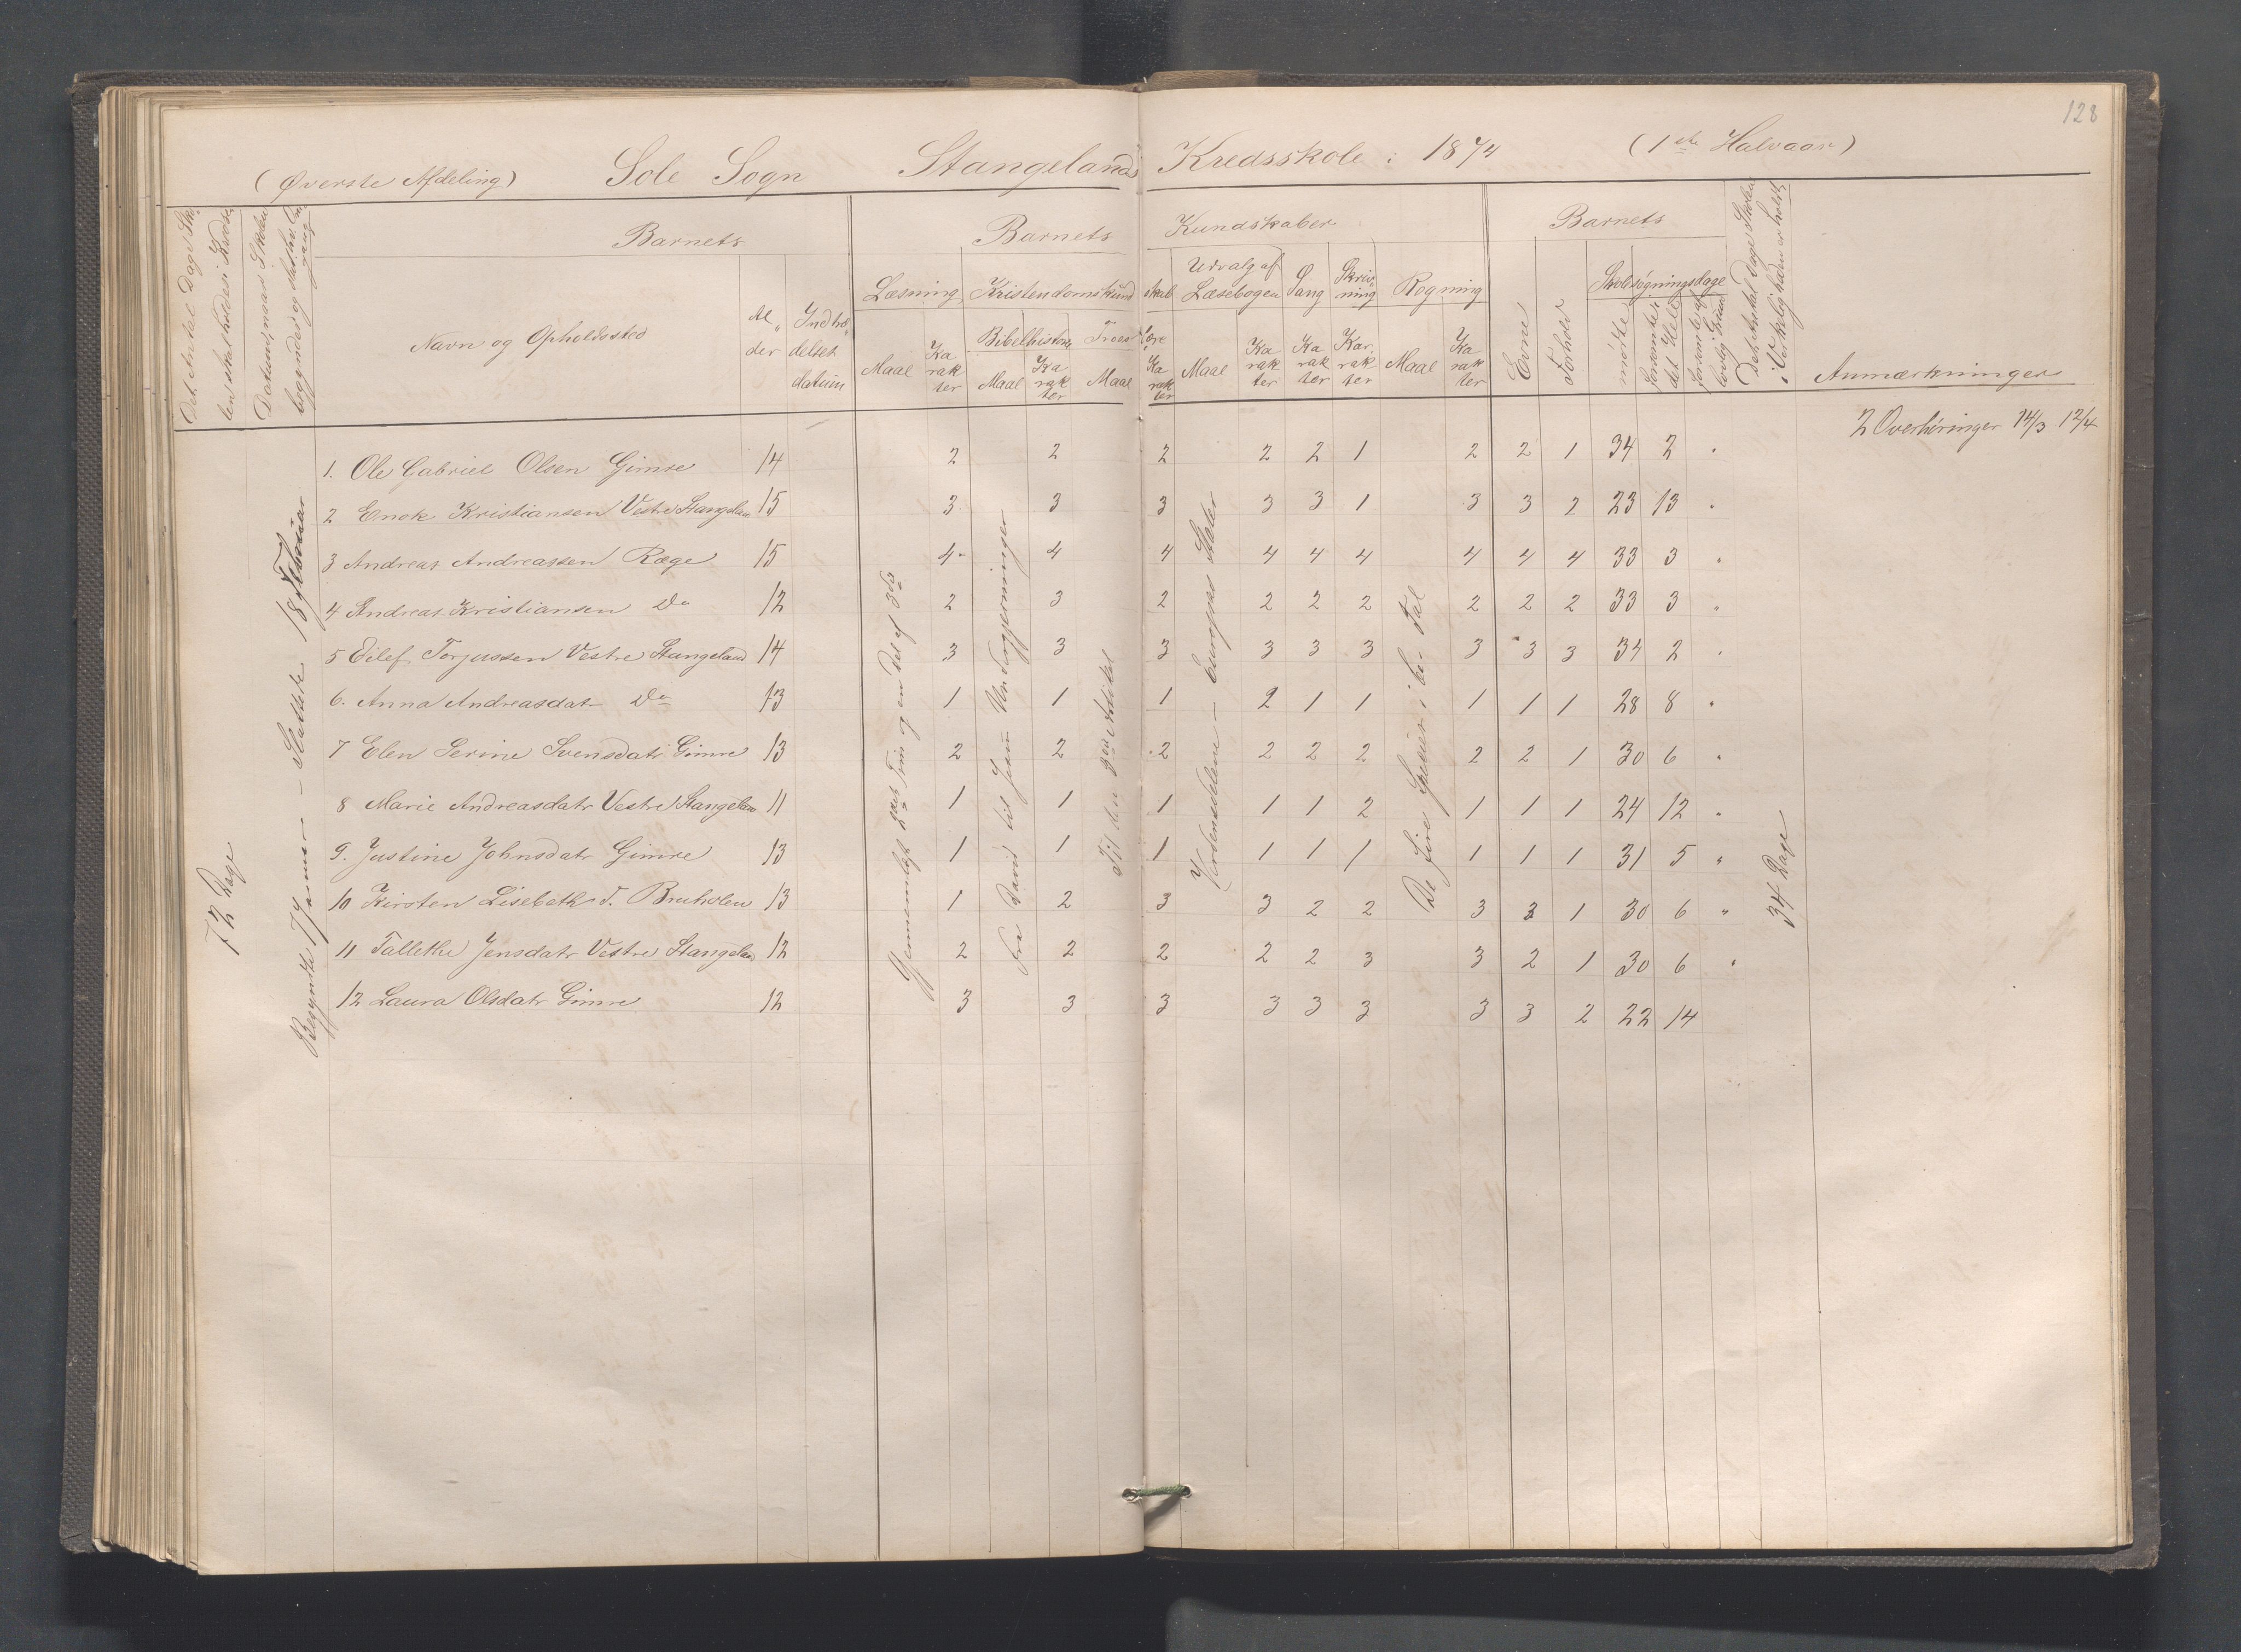 128
(Øverste Afdeling) Sole Sogn Stangelands Kredsskole i 1874 (1ste Halvaar)
Det Antal Dage Skolen skal holdes i Kredsen
Datum, naar Skolen begyndes og sluttes
Barnets
Navn og Opholdssted
Alder
Indtrædelses datum
Barnets Kundskaber
Læsning
Maal
Karakter
Kristendomskundskab
Bibelhistorie
Maal
Karakter
Troeslære
Maal
Karakter
Udvalg af Læsebogen
Maal
Karakter
Sang
Karakter
Skrivning
Karakter
Regning
Maal
Karakter
Barnets
Evne
Forhold
Skolesøgningsdage
mødte
forsømte det Hele
forsømte af lovlig Grund
Det Antal Dage Skolen i Virkeligheden er holdt
Anmærkninger
72 Dage
Begyndte 7 Januar – Sluttede 18 Februar
Gjennemligt og en Del af 3die
Fra David til Jesu Undergjerninger
Til den 3die Artikel
Verdensdelene – Europas Stater
De fire Specier i be- Tal
34 Dage
2 Overhøringer 14/3 12/4
1. Ole Gabriel Olsen Gimre 14 2 2 2 2 2 1 2 2 1 34 2 "
2 Enok Kristiansen Vestre Stangeland 15 3 3 3 3 3 1 3 3 2 23 13 "
3 Andreas Andreassen Ræge 15 4- 4 4 4 4 4 4 4 4 33 3 "
4 Andreas Kristiansen Do 12 2 3 2 2 2 2 2 2 2 33 3 "
5 Eilef Torjussen Vestre Stangeland 14 3 3 3 3 3 3 3 3 3 34 2 "
6. Anna Andreasdatr Do 13 1 1 1 2 1 1 1 1 1 28 8 "
7 Elen Serine Svensdatr Gimre 13 2 2 2 2 2 2 2 2 1 30 6 "
8 Marie Andreasdatr Vestre Stangeland 11 1 1 1 1 1 2 1 1 1 24 12 "
9. Justine Johnsdatr Gimre 13 1 1 1 1 1 1 1 1 1 31 5 "
10 Kirsten Lisebeth T. Bruholen 13 1 2 3 3 2 2 3 3 1 30 6 "
11 Tallethe Jensdatr Vestre Stangeland 12 2 2 2 2 2 3 3 2 1 30 6 "
12 Laura Olsdatr Gimre 12 3 3 3 3 3 3 3 3 2 22 14